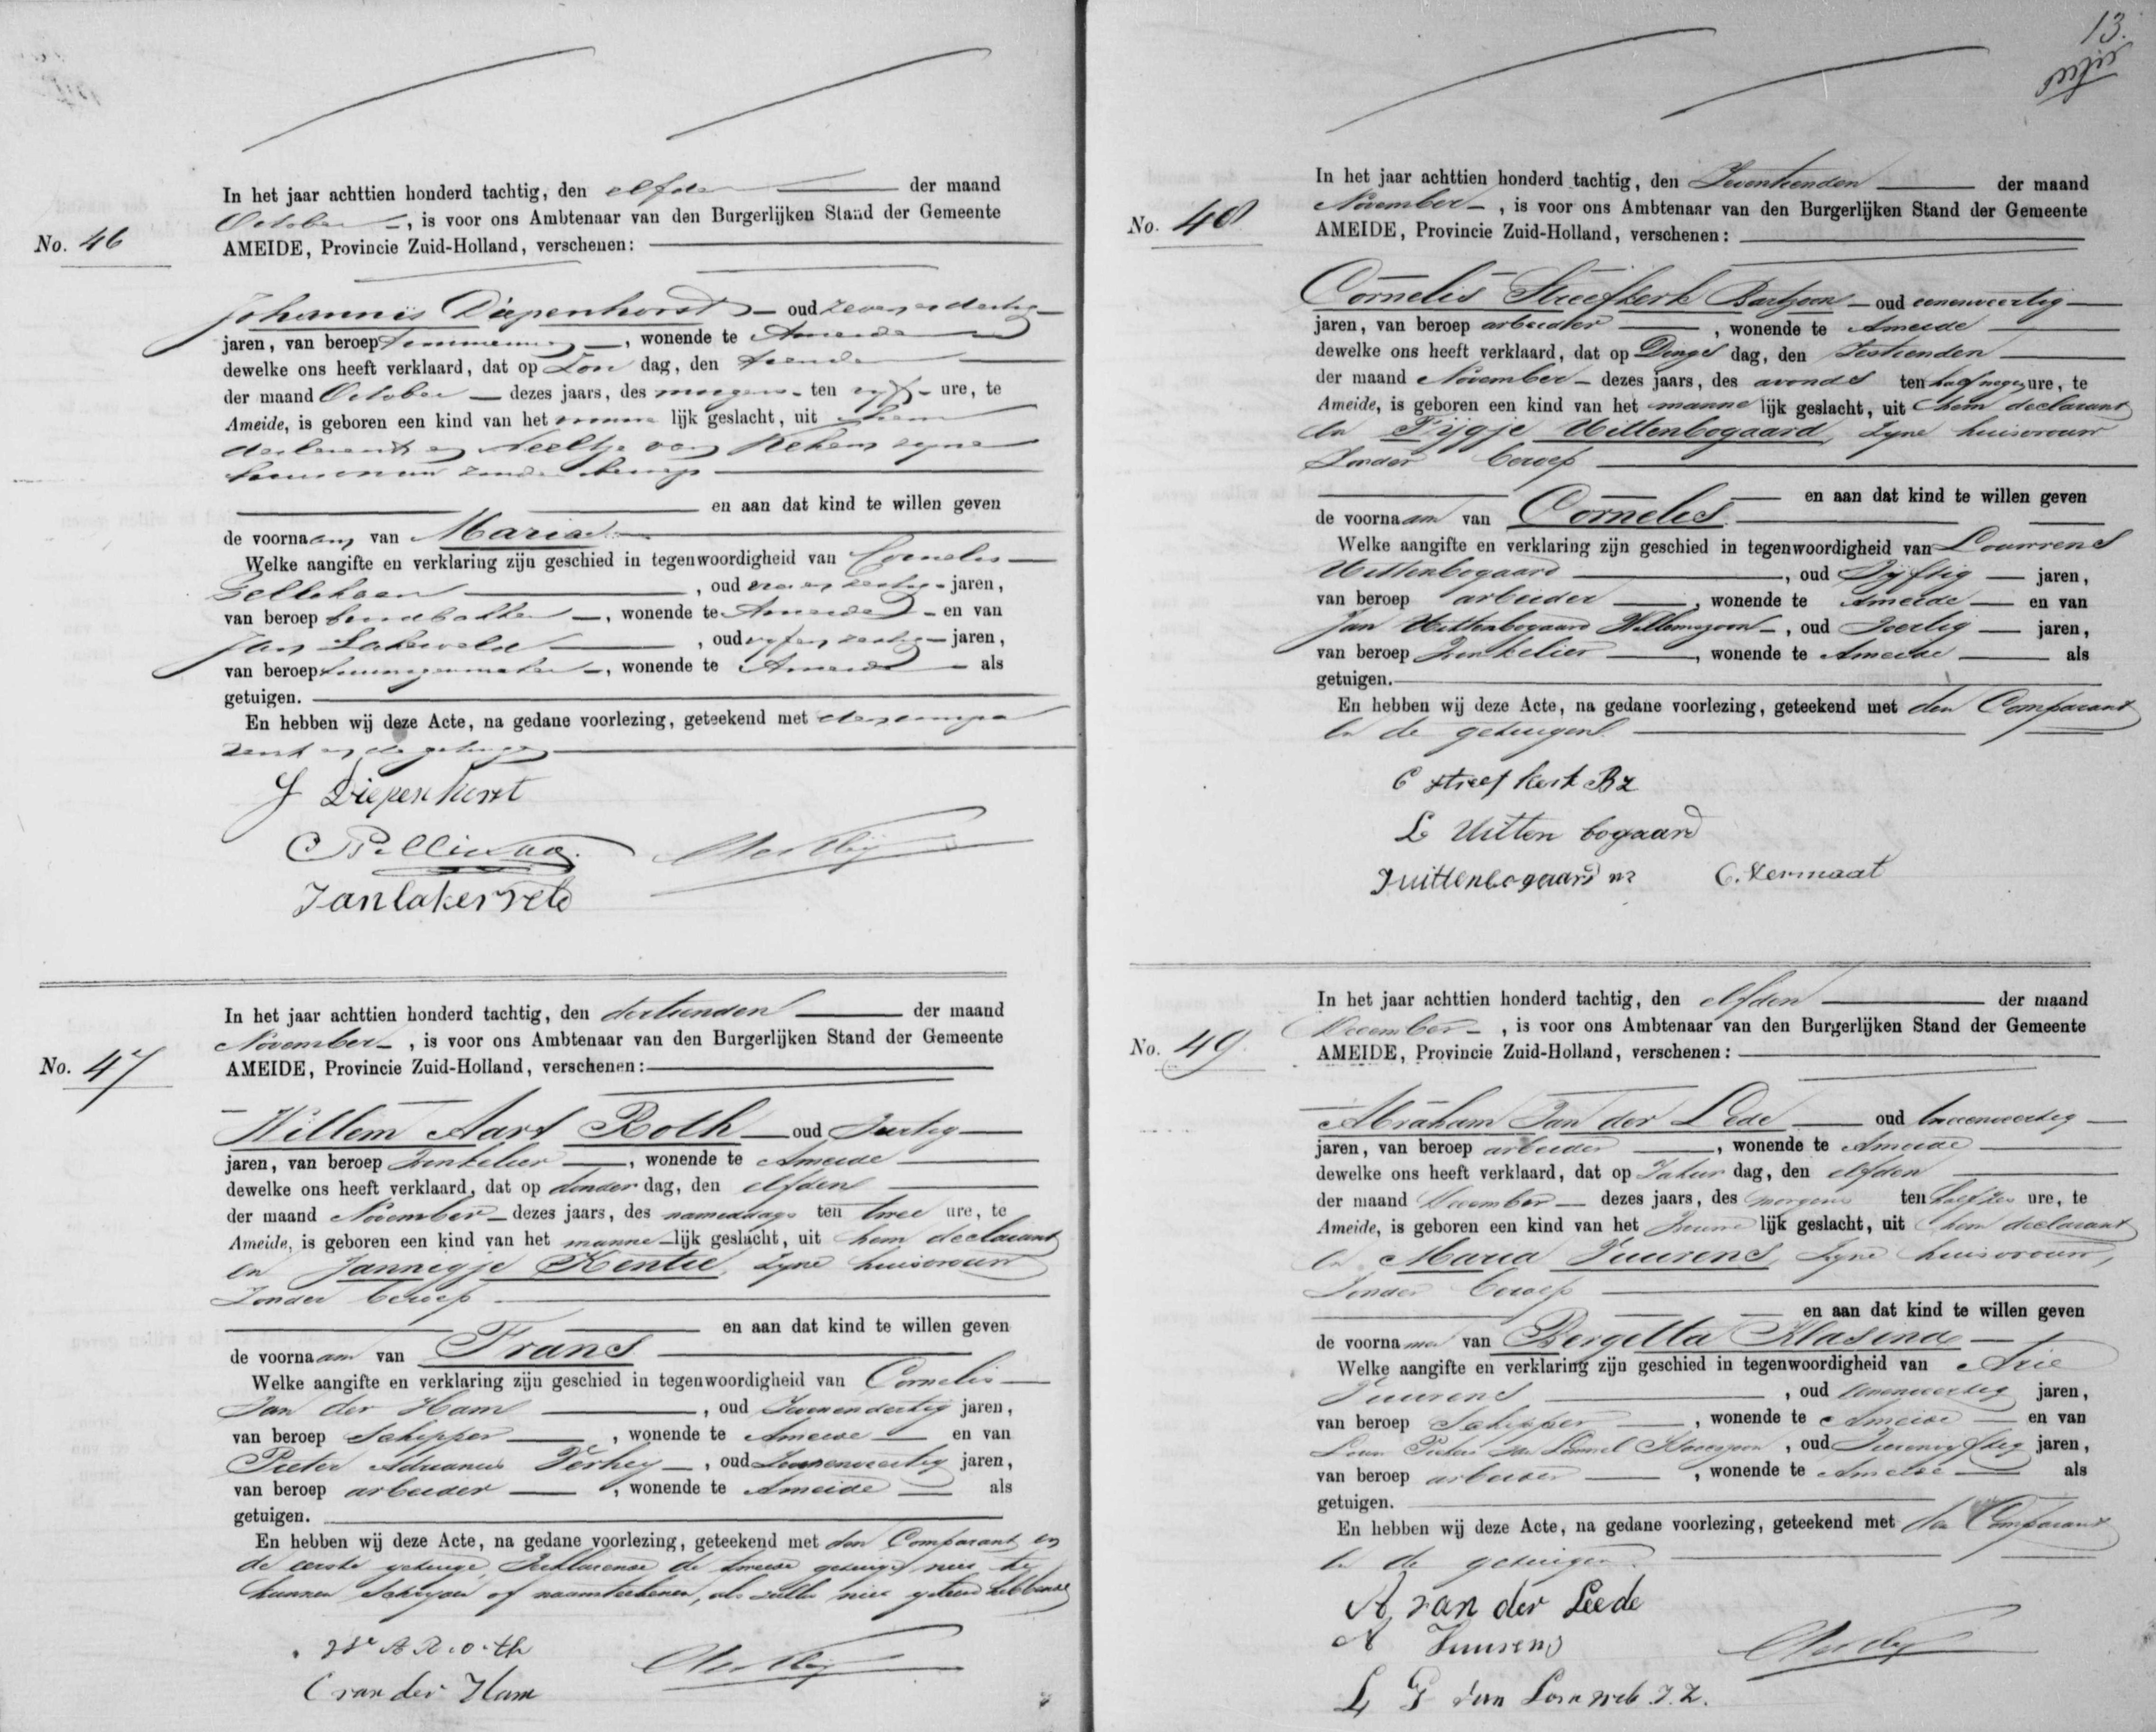 No. 46
In het jaar achttien honderd tachtig, den elfden der maand
October, is voor ons Ambtenaar van den Burgerlijken Stand der Gemeente
AMEIDE, Provincie Zuid-Holland, verschenen:
Johannis Diepenhorst oud zevenendertig
jaren, van beroep timmerman, wonende te Ameide
dewelke ons heeft verklaard, dat op Zon dag, den tienden
der maand October dezes jaars, des morgens ten vijf ure, te
Ameide, is geboren een kind van het vrouwe lijk geslacht, uit hem
declarant en Neeltje van Kekem zijne
huisvrouw zonder beroep
en aan dat kind te willen geven
de voornaam van Maria
Welke aangifte en verklaring zijn geschied in tegenwoordigheid van Cornelis
, oud jaren,
van beroep, wonende te Ameide en van
Jan Lakerveld, oud vijfenzestig jaren,
van beroep, wonende te Ameide als
getuigen.
En hebben wij deze Acte, na gedane voorlezing, geteekend met den compa
rant en de getuigen
J Diepenhorst
C Pellikaan
Jan Lakerveld
No. 47
In het jaar achttien honderd tachtig, den dertienden der maand
November, is voor ons Ambtenaar van den Burgerlijken Stand der Gemeente
AMEIDE, Provincie Zuid-Holland, verschenen:
Willem Aart Roth oud Veertig
jaren, van beroep Winkelier, wonende te Ameide
dewelke ons heeft verklaard, dat op donder dag, den elfden
der maand November dezes jaars, des namiddags ten twee ure, te
Ameide, is geboren een kind van het manne lijk geslacht, uit hem declarant
en Jannigje Kentie, zyne huisvrouw
Zonder beroep
en aan dat kind te willen geven
de voornaam van Frans
Welke aangifte en verklaring zijn geschied in tegenwoordigheid van Cornelis
Van der Ham, oud Zevenendertig jaren,
van beroep Schipper, wonende te Ameide en van
Pieter Adrianus Verhey, oud Zevenenveertig jaren,
van beroep arbeider, wonende te Ameide als
getuigen.
En hebben wij deze Acte, na gedane voorlezing, geteekend met den Comparant en
de eerste getuige, Verklarende de tweede getuige niet te
kunnen Schryven of naamteekenen, als zulks niet geleerd hebbende
W A Roth
C van der Ham
13.
No. 48
In het jaar achttien honderd tachtig, den Zeventienden der maand
November, is voor ons Ambtenaar van den Burgerlijken Stand der Gemeente
AMEIDE, Provincie Zuid-Holland, verschenen:
Cornelis Streefkerk Bartzoon oud eenenveertig
jaren, van beroep arbeider, wonende te Ameide
dewelke ons heeft verklaard, dat op Dings dag, den Zestienden
der maand November dezes jaars, des avonds ten half negen ure, te
Ameide, is geboren een kind van het manne lijk geslacht, uit hem declarant
en Fijgje Uittenbogaard, zyne huisvrouw
Zonder beroep
en aan dat kind te willen geven
de voornaam van Cornelis
Welke aangifte en verklaring zijn geschied in tegenwoordigheid van Lourrens
Uittenbogaard, oud Vyftig jaren,
van beroep arbeider, wonende te Ameide en van
Jan Uittenbogaard Willemszoon, oud Veertig jaren,
van beroep Winkelier, wonende te Ameide als
getuigen.
En hebben wij deze Acte, na gedane voorlezing, geteekend met den Comparant
en de getuigen.
C Streefkerk Bz
L Uittenbogaard
J Uittenbogaard wz C. Vermaat
No. 49
In het jaar achttien honderd tachtig, den elfden der maand
December, is voor ons Ambtenaar van den Burgerlijken Stand der Gemeente
AMEIDE, Provincie Zuid-Holland, verschenen:
Abraham Van der Lede oud tweeenveertig
jaren, van beroep arbeider, wonende te Ameide
dewelke ons heeft verklaard, dat op Zatur dag, den elfden
der maand December dezes jaars, des morgens ten half zes ure, te
Ameide, is geboren een kind van het Vrouwe lijk geslacht, uit hem declarant
en Maria Vuurens, zyne huisvrouw,
Zonder beroep
en aan dat kind te willen geven
de voorna men van Bergetta Klasina
Welke aangifte en verklaring zijn geschied in tegenwoordigheid van Arie
Vuurens, oud jaren,
van beroep Schipper, wonende te Ameide en van
, oud jaren,
van beroep arbeider, wonende te Ameide als
getuigen.
En hebben wij deze Acte, na gedane voorlezing, geteekend met den Comparant
en de getuigen.
A van der Leede
A Vuurens
L P van